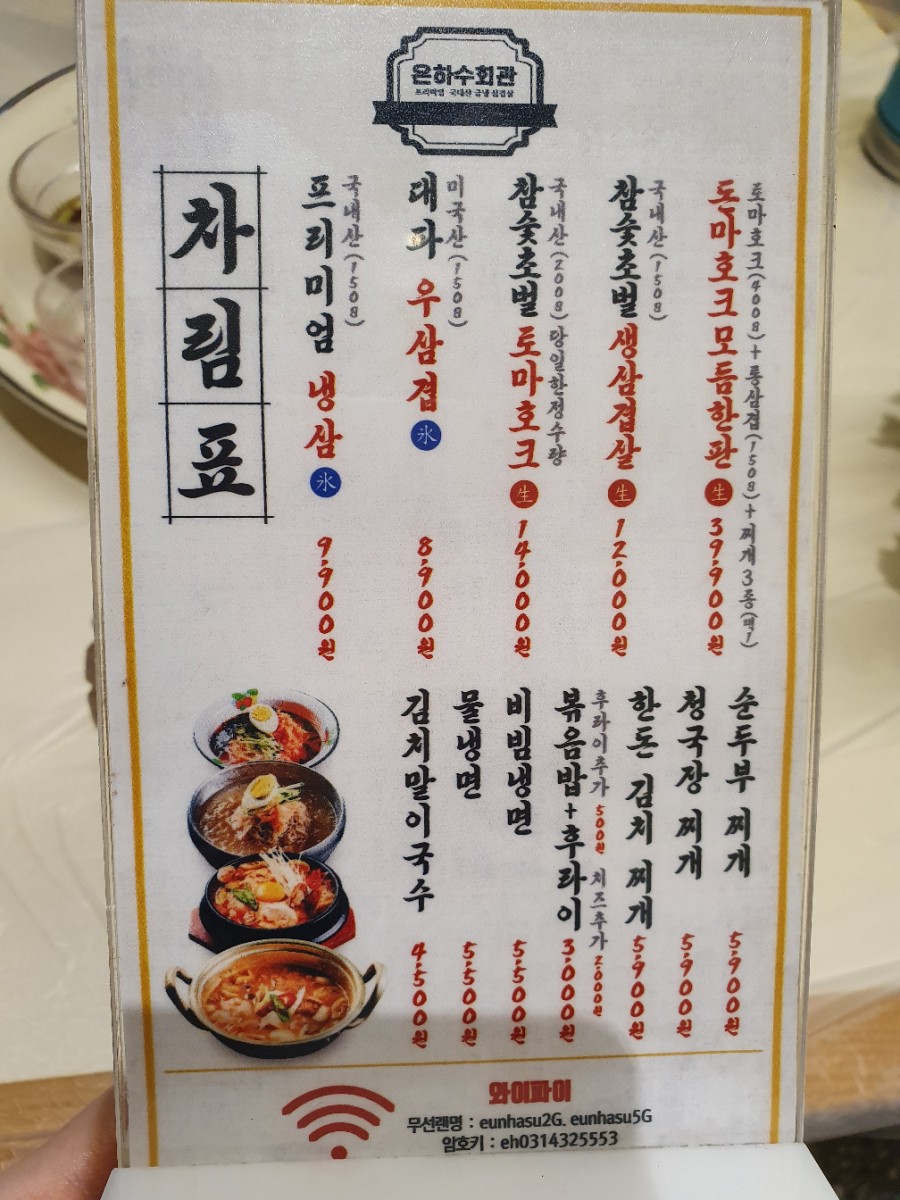 은하수회관
프리미엄 국내산 급냉 삼겹살
차림표
토마호크(400g)+통삼겹(150g)+찌개3종(택1)
돈마호크모듬한판 生 39,900원
국내산(150g)
참숯초벌 생삼겹살 生 12,000원
국내산(200g) 당일한정수량
참숯초벌 토마호크 生 14,000원
미국산(150g)
대파 우삼겹 氷 8,900원
국내산(150g)
프리미엄 냉삼 氷 9,900원
순두부 찌개 5,900원
청국장 찌개 5,900원
한돈 김치 찌개 5,900원
후라이추가 500원 치즈추가 2,000원
볶음밥+후라이 3,000원
비빔냉면 5,500원
물냉면 5,500원
김치말이국수 4,500원
와이파이
무선랜명 : eunhasu2G. eunhasu5G
암호키 : eh0314325553